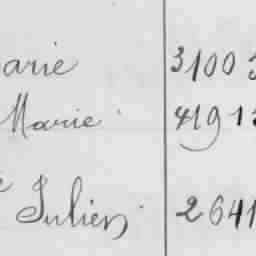 arie 3100
Marie 4191
Julien 2641